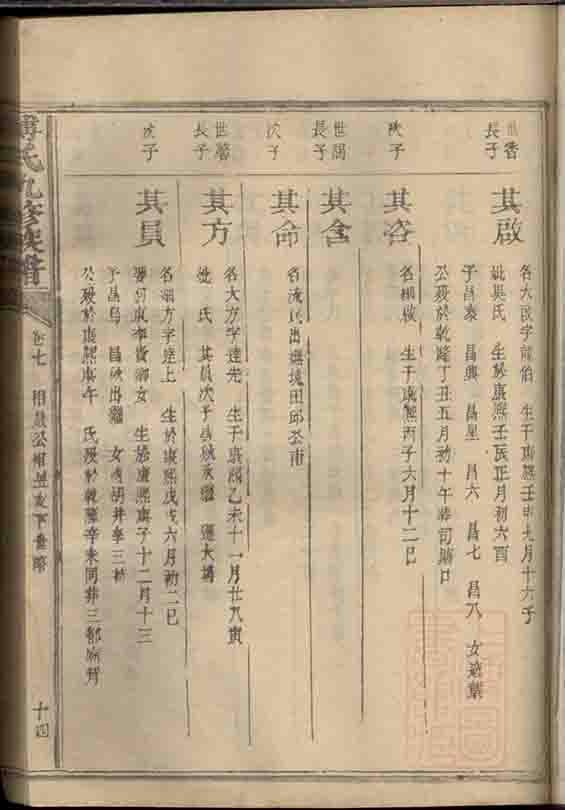 世香
長子
其啟
名大啟字龍伯 生于康熙壬申九月十六子
妣吳氏 生於康熙壬辰正月初六酉
子昌泰 昌興 昌星 昌六 昌七 昌八 女適葉
公歿於乾隆丁丑五月初十午葬司塘口
次子
其咨
名細啟 生于康熙丙子六月十二巳
世
長子
其含
次子
其命
名流民出繼境田邱公甫
世馨
長子
其方
名大方字達先 生于康熙乙未十一月廿八寅
妣 氏 其員次子昌欽承繼
次子
其員
名細方字達上 生於康熙戊戌六月初二巳
生於康熙庚子十二月十三
子昌烏 昌欽出繼 女適胡井李三
公歿於 庚午 氏歿於乾隆辛未同葬三都廟背
氏九修族譜
卷七
十四